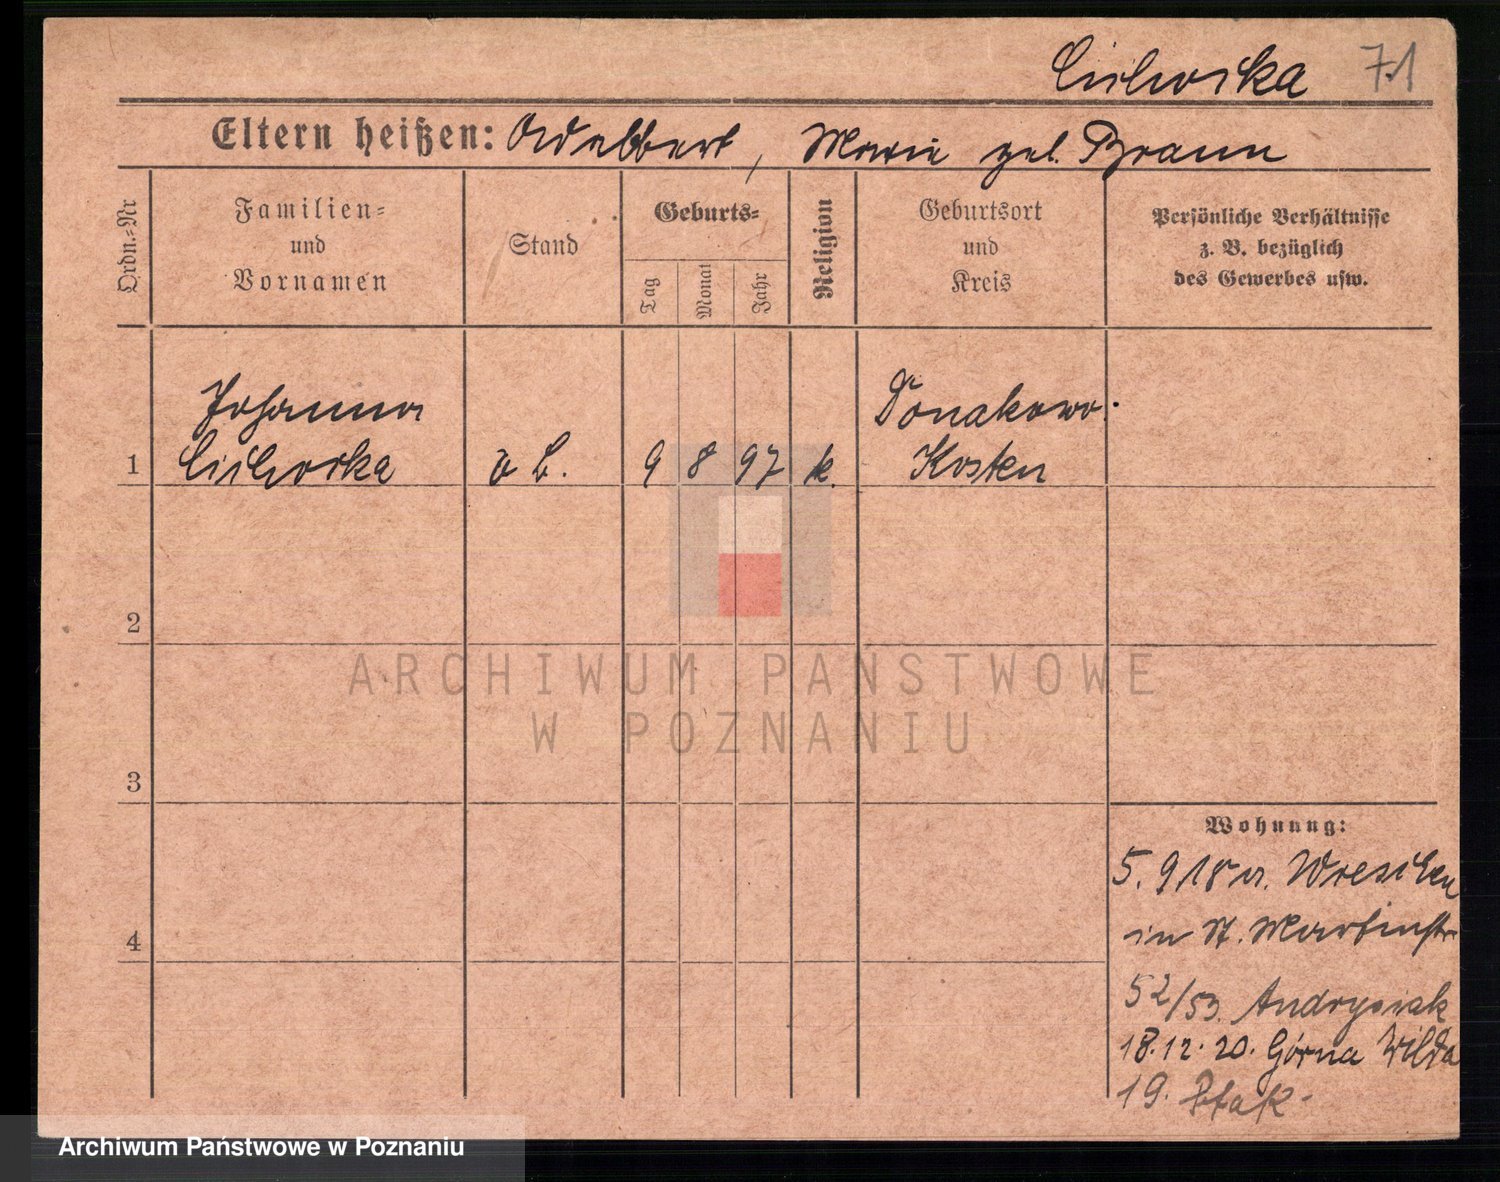 Cichorska 71
Eltern heißen: Adalbert, Marie geb. Braun
Ordn.-Nr
Familien-
und
Vornamen
Stand
Geburts-
Tag
Monat
Jahr
Religion
Geburtsort
und
Kreis
Persönliche Verhältnisse
z. B. bezüglich
des Gewerbes usw.
Johanna
1 Cichorska o B. 9 8 97 k.
Donakowo
Kosten
2
3
4
Wohnung:
5. 9 18 a. Wreschen
in St. Martinstr
52/53. Andrysiak
18.12.20. Górna Wilda
19. Ptak
ARCHIWUM PAŃSTWOWE
W POZNANIU
Archiwum Państwowe w Poznaniu